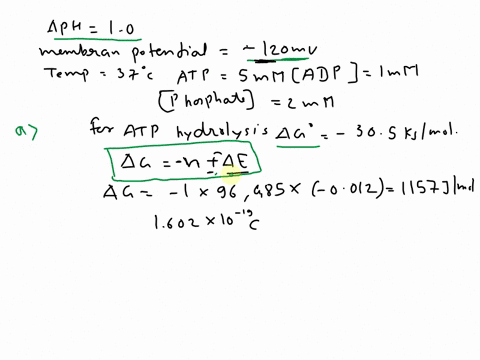 ΔPH = 1.0
membran potential = -120mv
Temp = 37°c ATP = 5mM [ADP] = 1mM
[Phosphate] = 2mM
a> for ATP hydrolysis ΔG° = -30.5 KJ/mol.
ΔG = -n f ΔE
ΔG = -1 × 96,485 × (-0.012) = 1157 J/mol
1.602 × 10⁻¹⁹ C